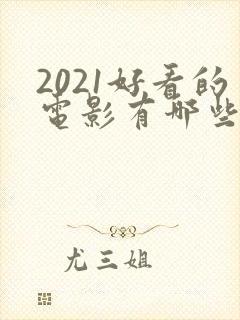 2021好看的
电影有哪些
尤三姐